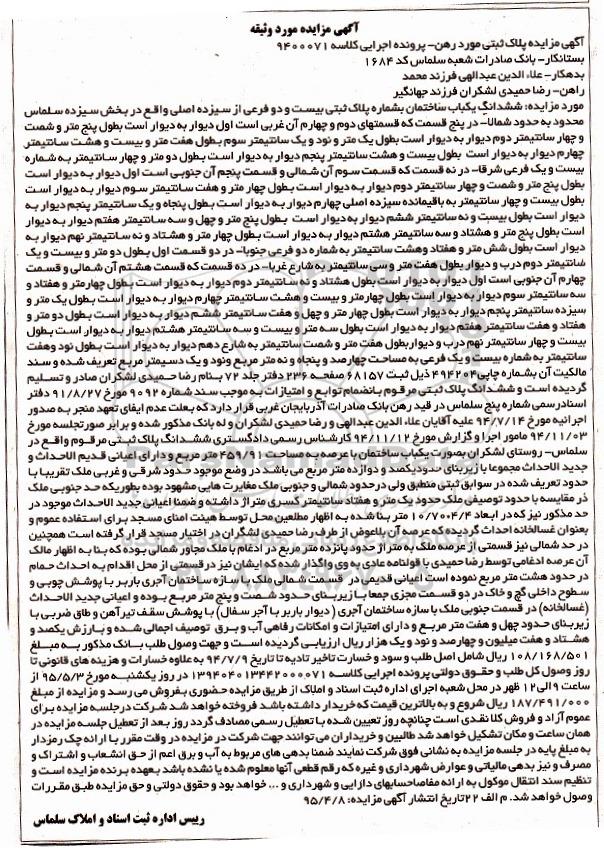 آگهی مزایده مورد وثیقه
آگهی مزایده پلاک ثبتی مورد رهن- پرونده اجرایی کلاسه ۹۴۰۰۰۷۱
بستانکار- بانک صادرات شعبه سلماس کد ۱۶۸۴
بدهکار- علاء الدین عبدالهی فرزند محمد
راهن- رضا حمیدی لشکران فرزند جهانگیر
مورد مزایده: ششدانگ یکباب ساختمان بشماره پلاک ثبتی بیست و دو فرعی از سیزده اصلی واقع در بخش سیزده سلماس
محدود به حدود شمالا- در پنج قسمت که قسمتهای دوم و چهارم آن غربی است اول دیوار به دیوار است بطول پنج متر و شصت
و چهار سانتیمتر دوم دیوار به دیوار است بطول یک متر و نود و یک سانتیمتر سوم بطول هفت متر و بیست و هشت سانتیمتر
چهارم دیوار به دیوار است بطول بیست و هشت سانتیمتر پنجم دیوار به دیوار است بطول دو متر و چهار سانتیمتر به شماره
بیست و یک فرعی شرقا- در نه قسمت که قسمت سوم آن شمالی و قسمت پنجم آن جنوبی است اول دیوار به دیوار است
بطول پنج متر و شصت و چهار سانتیمتر دوم دیوار به دیوار است بطول چهار متر و هفت سانتیمتر سوم دیوار به دیوار است
بطول بیست و چهار سانتیمتر به باقیمانده سیزده اصلی چهارم دیوار به دیوار است بطول پنجاه و یک سانتیمتر پنجم دیوار به
دیوار است بطول بیست و نه سانتیمتر ششم دیوار به دیوار است بطول پنج متر و چهل و سه سانتیمتر هفتم دیوار به دیوار
است بطول پنج متر و هشتاد و سه سانتیمتر هشتم دیوار به دیوار است بطول چهار متر و هشتاد و نه سانتیمتر نهم دیوار به
دیوار است بطول شش متر و هفتاد وهشت سانتیمتر به شماره دو فرعی جنوبا- در دو قسمت اول بطول دو متر و بیست و یک
سانتیمتر دوم درب و دیوار بطول هفت متر و سی سانتیمتر به شارع غربا- در ده قسمت که قسمت هشتم آن شمالی و قسمت
چهارم آن جنوبی است اول دیوار به دیوار است بطول هشتاد و نه سانتیمتر دوم دیوار به دیوار است بطول چهارمتر و هفتاد و
سه سانتیمتر سوم دیوار به دیوار است بطول چهار متر و بیست و هشت سانتیمتر چهارم دیوار به دیوار است بطول یک متر و
سیزده سانتیمتر پنجم دیوار به دیوار است بطول چهارمتر و چهل و هفت سانتیمتر ششم دیوار به دیوار است بطول دو متر و
هفتاد و هفت سانتیمتر هفتم دیوار به دیوار است بطول سه متر و بیست و سه سانتیمتر هشتم دیوار به دیوار است بطول
بیست و چهار سانتیمتر نهم درب و دیواربطول هفت متر و شصت سانتیمتر به شارع دهم دیوار به دیوار است بطول نود وهفت
سانتیمتر به شماره بیست و یک فرعی به مساحت چهارصد و پنجاه و نه متر مربع ونود و یک دسیمتر مربع تعریف شده و سند
مالکیت آن بشماره چاپی ۴۹۴۲۰۴ ذیل ثبت ۶۸۱۵۷ صفحه ۲۳۶ دفتر جلد ۷۲ بنام رضا حمیدی لشکران صادر و تسلیم
گردیده است و ششدانگ پلاک ثبتی مرقوم بانضمام توابع و امتیازات به موجب سند شماره ۹۰۹۲ مورخ ۹۱/۸/۲۷ دفتر
اسنادرسمی شماره پنج سلماس در قید رهن بانک صادرات آذربایجان غربی قرار دارد که بعلت عدم ایفای تعهد منجر به صدور
اجرائیه مورخ ۹۴/۷/۱۴ علیه آقایان علاء الدین عبدالهی و رضا حمیدی لشکران و له بانک مذکور شده و برابر صورتجلسه مورخ
۹۴/۱۱/۰۳ مامور اجرا و گزارش مورخ ۹۴/۱۱/۱۲ کارشناس رسمی دادگستری ششدانگ پلاک ثبتی مرقوم واقع در
سلماس- روستای لشکران بصورت یکباب ساختمان با عرصه به مساحت ۴۵۹/۹۱ متر مربع و دارای اعیانی قدیم الاحداث و
جدید الاحداث مجموعا با زیربنای حدودیکصد و دوازده متر مربع می باشد در وضع موجود حدود شرقی و غربی ملک تقریبا با
حدود تعریف شده در سوابق ثبتی منطبق ولی درحدود شمالی و جنوبی ملک مغایرت هایی مشهود بوده بطوریکه حد جنوبی ملک
در مقایسه با حدود توصیفی ملک حدود یک متر و هفتاد سانتیمتر کسری متراژ داشته و ضمنا اعیانی جدید الاحداث موجود در
حد مذکور نیز که در ابعاد ۱۰/۷۰*۴/۴ متر بنا شده به اظهار مطلعین محل توسط هیئت امنای مسجد برای استفاده عموم و
بعنوان غسالخانه احداث گردیده که عرصه آن بلاعوض از طرف رضا حمیدی لشگران در اختیار مسجد قرار گرفته است همچنین
در حد شمالی نیز قسمتی از عرصه ملک به متراژ حدود پانزده متر مربع در ادغام با ملک مجاور شمالی بوده که بنا به اظهار مالک
آن عرصه ادغامی توسط رضا حمیدی با قولنامه عادی به وی واگذار شده که ایشان نیز در قسمتی از محل اقدام به احداث حمام
در حدود هشت متر مربع نموده است اعیانی قدیمی در قسمت شمالی ملک با سازه ساختمان آجری باربر با پوشش چوبی و
سطوح داخلی گچ و خاک در دو قسمت مجزی جمعا با زیربنای حدود شصت و پنج متر مربع بوده و اعیانی جدید الاحداث
(غسالخانه) در قسمت جنوبی ملک با سازه ساختمان آجری (دیوار باربر با آجر سفال) با پوشش سقف تیرآهن و طاق ضربی با
زیربنای حدود چهل و هفت متر مربع و دارای امتیازات و امکانات رفاهی آب و برق توصیف اجمالی شده و بارزش یکصد و
هشتاد و هفت میلیون و چهارصد و نود و یک هزار ریال ارزیابی گردیده است و جهت وصول طلب بانک مذکور به مبلغ
۱۰۸/۱۶۸/۵۰۱ ریال شامل اصل طلب و سود و خسارت تاخیر تادیه تا تاریخ ۹۴/۷/۹ به علاوه خسارات و هزینه های قانونی تا
روز وصول کل طلب و حقوق دولتی پرونده اجرایی کلاسه ۱۳۹۴۰۴۰۱۳۴۴۲۰۰۰۰۷۱ در روز یکشنبه مورخ ۹۵/۵/۳ از
ساعت ۹ الی ۱۲ ظهر در محل شعبه اجرای اداره ثبت اسناد و املاک از طریق مزایده حضوری بفروش می رسد و مزایده از مبلغ
۱۸۷/۴۹۱/۰۰۰ ریال شروع و به بالاترین قیمت که خریدار داشته باشد فروخته خواهد شد شرکت درجلسه مزایده برای
عموم آزاد و فروش کلا نقدی است چنانچه روز تعیین شده با تعطیل رسمی مصادف گردد روز بعد از تعطیل جلسه مزایده در
همان ساعت و مکان تشکیل خواهد شد طالبین و خریداران می توانند جهت شرکت در مزایده در وقت مقرر با ارائه چک رمزدار
به مبلغ پایه در جلسه مزایده به نشانی فوق شرکت نمایند ضمنا بدهی های مربوط به آب و برق اعم از حق انشعاب و اشتراک و
مصرف و نیز بدهی مالیاتی و عوارض شهرداری و غیره که رقم قطعی آنها معلوم شده یا نشده باشد بعهده برنده مزایده است و
تنظیم سند انتقال موکول به ارائه مفاصاحسابهای دارایی و شهرداری و ... خواهد بود و حقوق دولتی و حق مزایده طبق مقررات
وصول خواهد شد. م الف ۲۲ تاریخ انتشار آگهی مزایده: ۹۵/۴/۸
رییس اداره ثبت اسناد و املاک سلماس